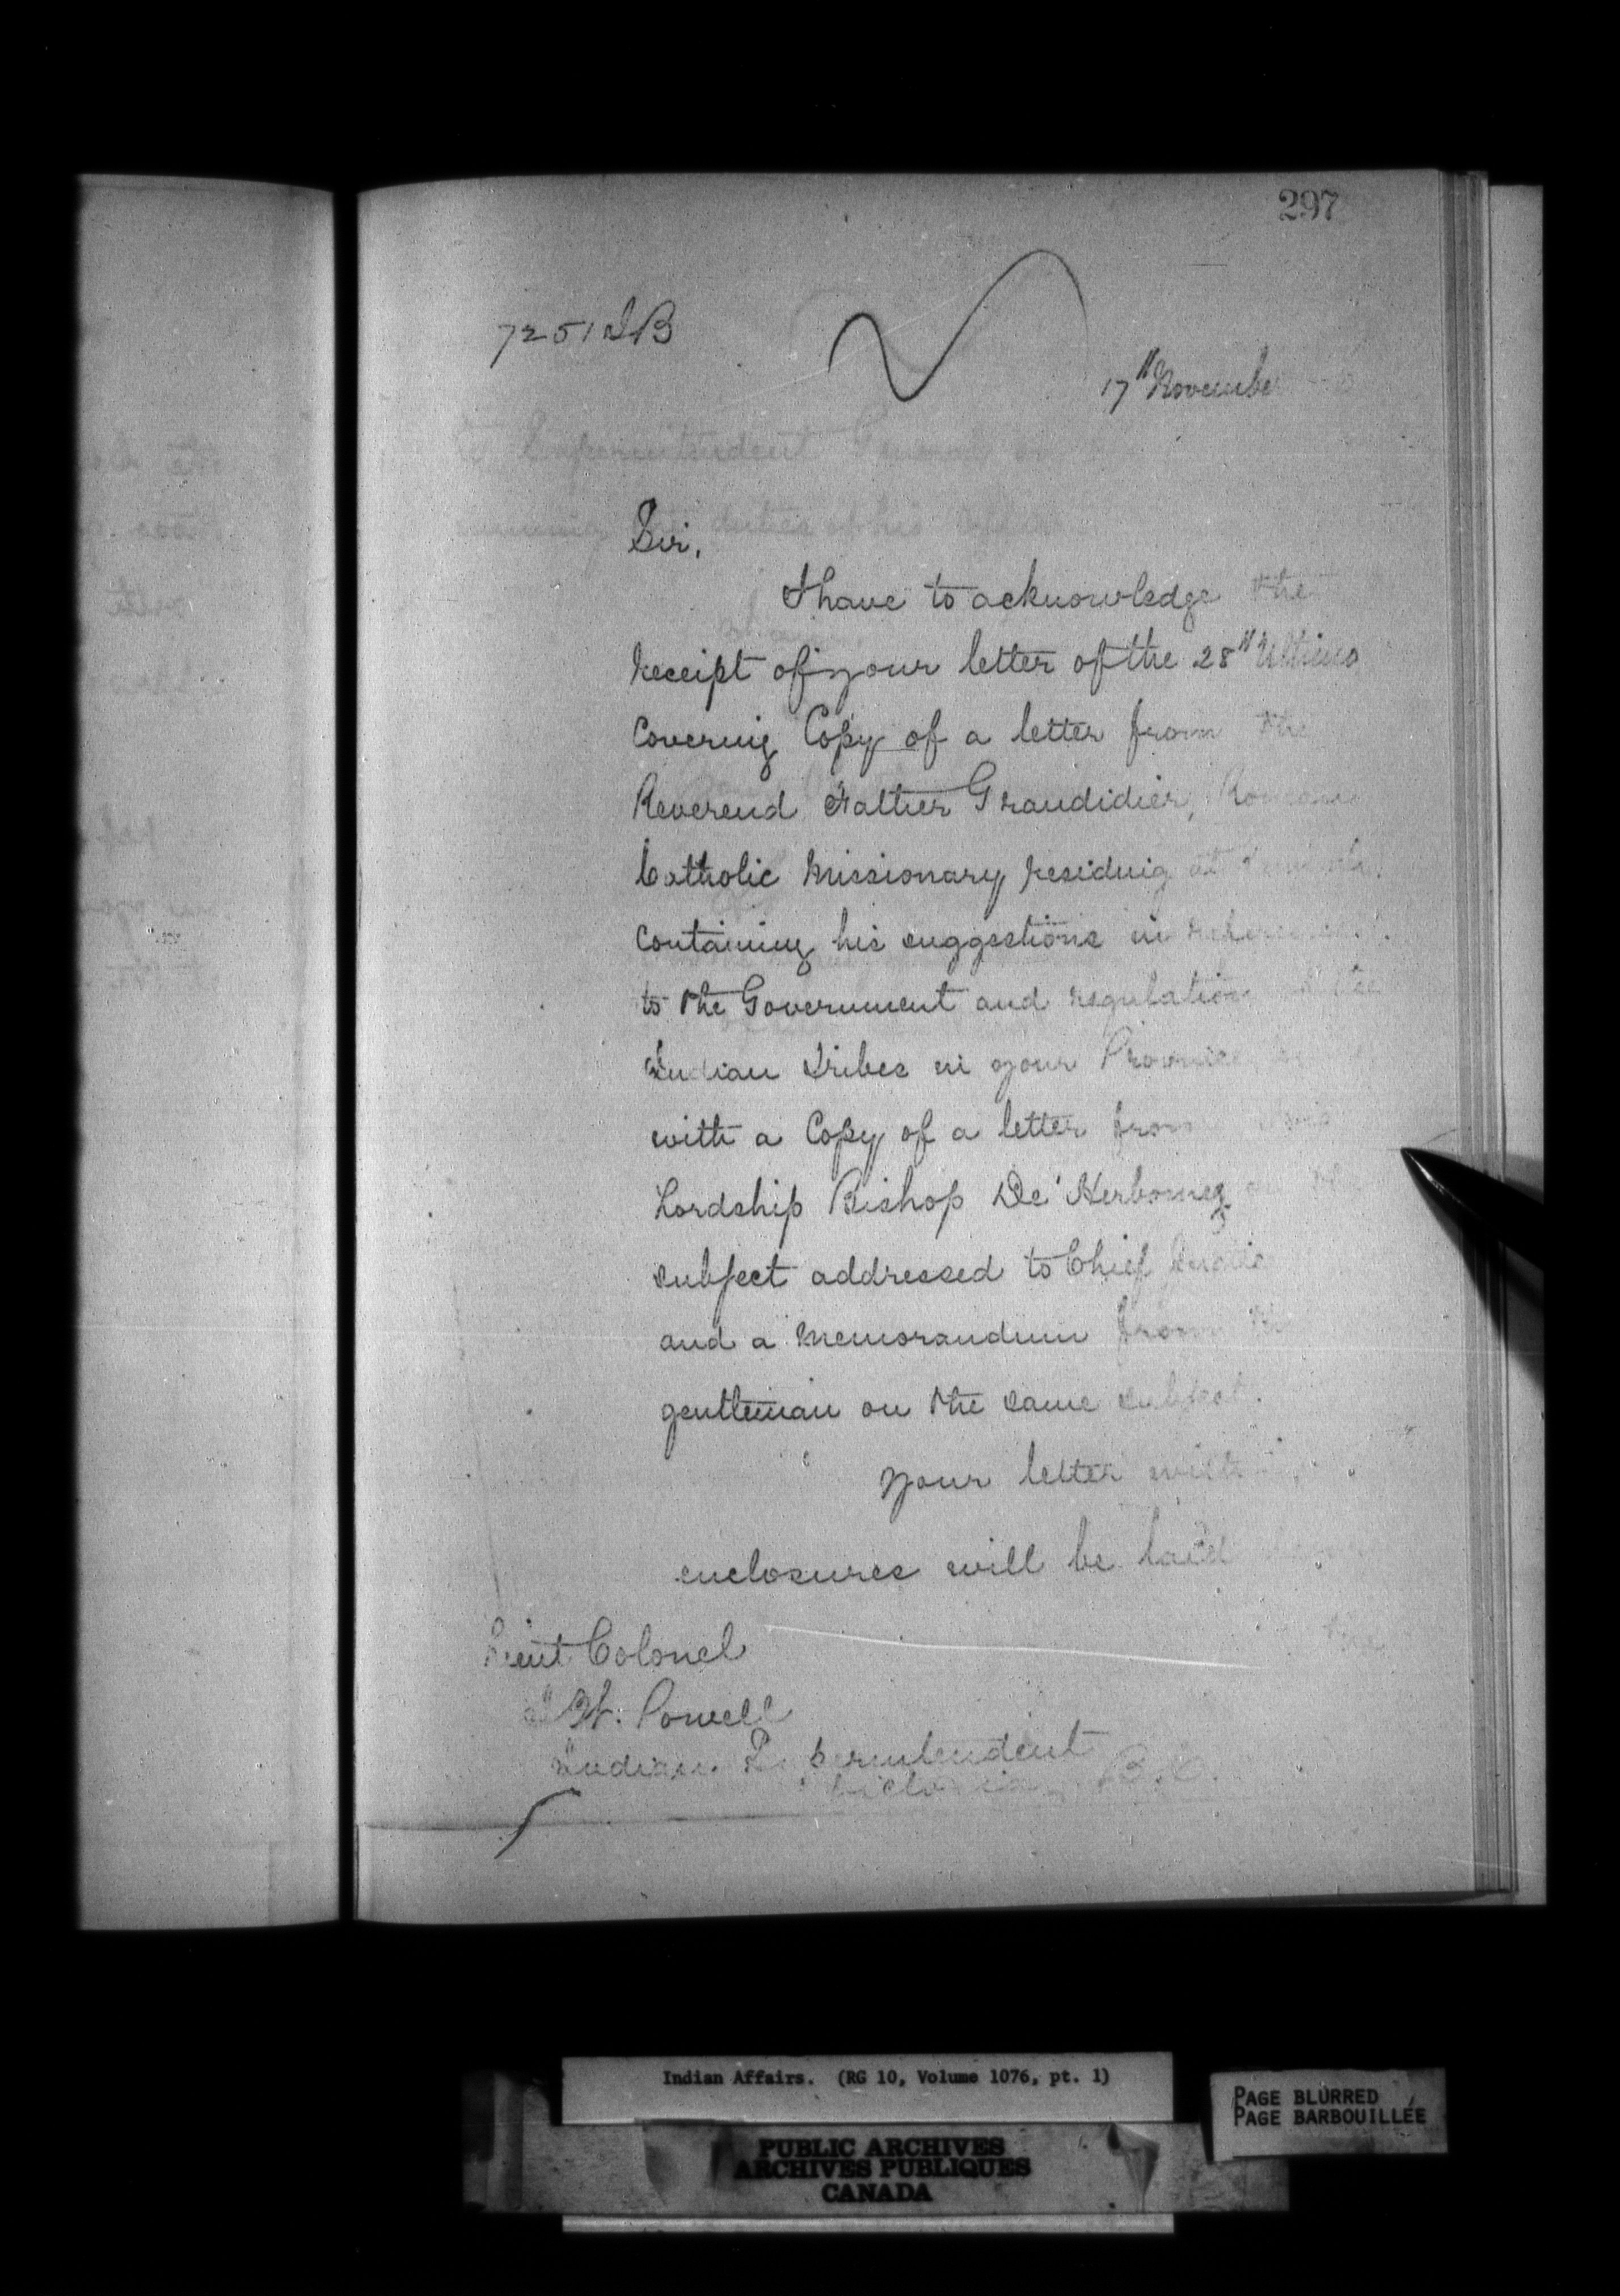 297
7251 IB
17th November
Sir,
I have to acknowledge the
receipt of your letter of the 28th Ultimo
Covering Copy of a letter from the
Reverend Father Grandidier, Roman
Catholic Missionary residing at
Containing his suggestions in reference
to the Government and regulation
Indian Tribes in your Province
with a Copy of a letter from His
Lordship Bishop De'Herbomez on the
subject addressed to Chief Justice
and a Memorandum from
gentleman on the same subject.
Your letter with
enclosures will be laid
Lieut Colonel
W. Powell
Indian Superintendent
Victoria, B.C.
Indian Affairs. (RG 10, Volume 1076, pt. 1)
PAGE BLURRED
PAGE BARBOUILLÉE
PUBLIC ARCHIVES
ARCHIVES PUBLIQUES
CANADA